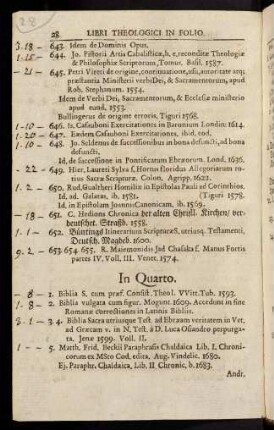 28. LIBRI THEOLOGICI IN FOLIO.
3-18 - 643. Idem de Dominis Opus.
1-15 - 644. Jo. Pistorii Artis Cabalisticæ, h. e. reconditæ Theologiæ
& Philosophiæ Scriptorum, Tomus. Basil. 1587.
-21- 645. Petri Vireti de origine, continuatione, usu, autoritate atq;
præstantia Ministerii verbi Dei, & Sacramentorum, apud
Rob. Stephanum. 1554.
Idem de Verbi Dei, Sacramentorum, & Ecclesiæ ministerio
apud eund. 1553.
Bullingerus de origine erroris. Tiguri 1568.
-1-10 - 646. Is. Casauboni Exercitationes in Baronium Londin: 1614.
-1-20 - 647. Eædem Casauboni Exercitationes, ibid. eod.
-1-10 - 648. Jo. Seldenus de successionibus in bona defuncti, ad bona
defuncti.
Id. de successione in Pontificatum Ebræorum. Lond. 1636.
- -22 - 649. Hier. Laureti Sylva s. Hortus floridus Allegoriarum totius
Sacræ Scripturæ. Colon. Agripp. 1622.
1-2 - 650. Rud. Gualtheri Homiliæ in Epistolas Pauli ad Corinthios.
Id. ad. Galatas, ib. 1581. (Tiguri 1578.
Id. in Epistolam Joannis Canonicam, ib. 1569.
-18 - 651. C. Hedions Chronica der alten Christl. Kirchen/ verdeutschet.
Straßb. 1558.
-1-1 - 652. Büntings Itinerarium Scripturæ S. utriusq; Testamenti,
Deutsch. Magdeb. 1600.
9-2 - 653. 654. 655. R. Maiemonidis Jad Chasaka s. Manus Fortis
partes IV. Voll. III. Venet. 1574.
In Quarto.
- 8 - 1. Biblia S. cum præf. Consist. Theol. VVitt. Tub. 1593.
1-8 - 2. Biblia vulgata cum figur. Mogunt. 1609. Accedunt in fine
Romanæ correctiones in Latinis Bibliis.
3-1-34. 3. 4. Biblia Sacra utriusque Test. ad Ebræam veritatem in Vet.
ad Græcam v. in N. Test. à D. Luca Osiandro perpurgata.
Jenæ 1599. Voll. II.
-1- - 5. Matth. Frid. Beckii Paraphrasis Chaldaica Lib. I. Chronicorum
ex MSto Cod. edita, Aug. Vindelic. 1680.
Ej. Paraphr. Chaldaica, Lib. II Chronic. b. 1683.
Andr.